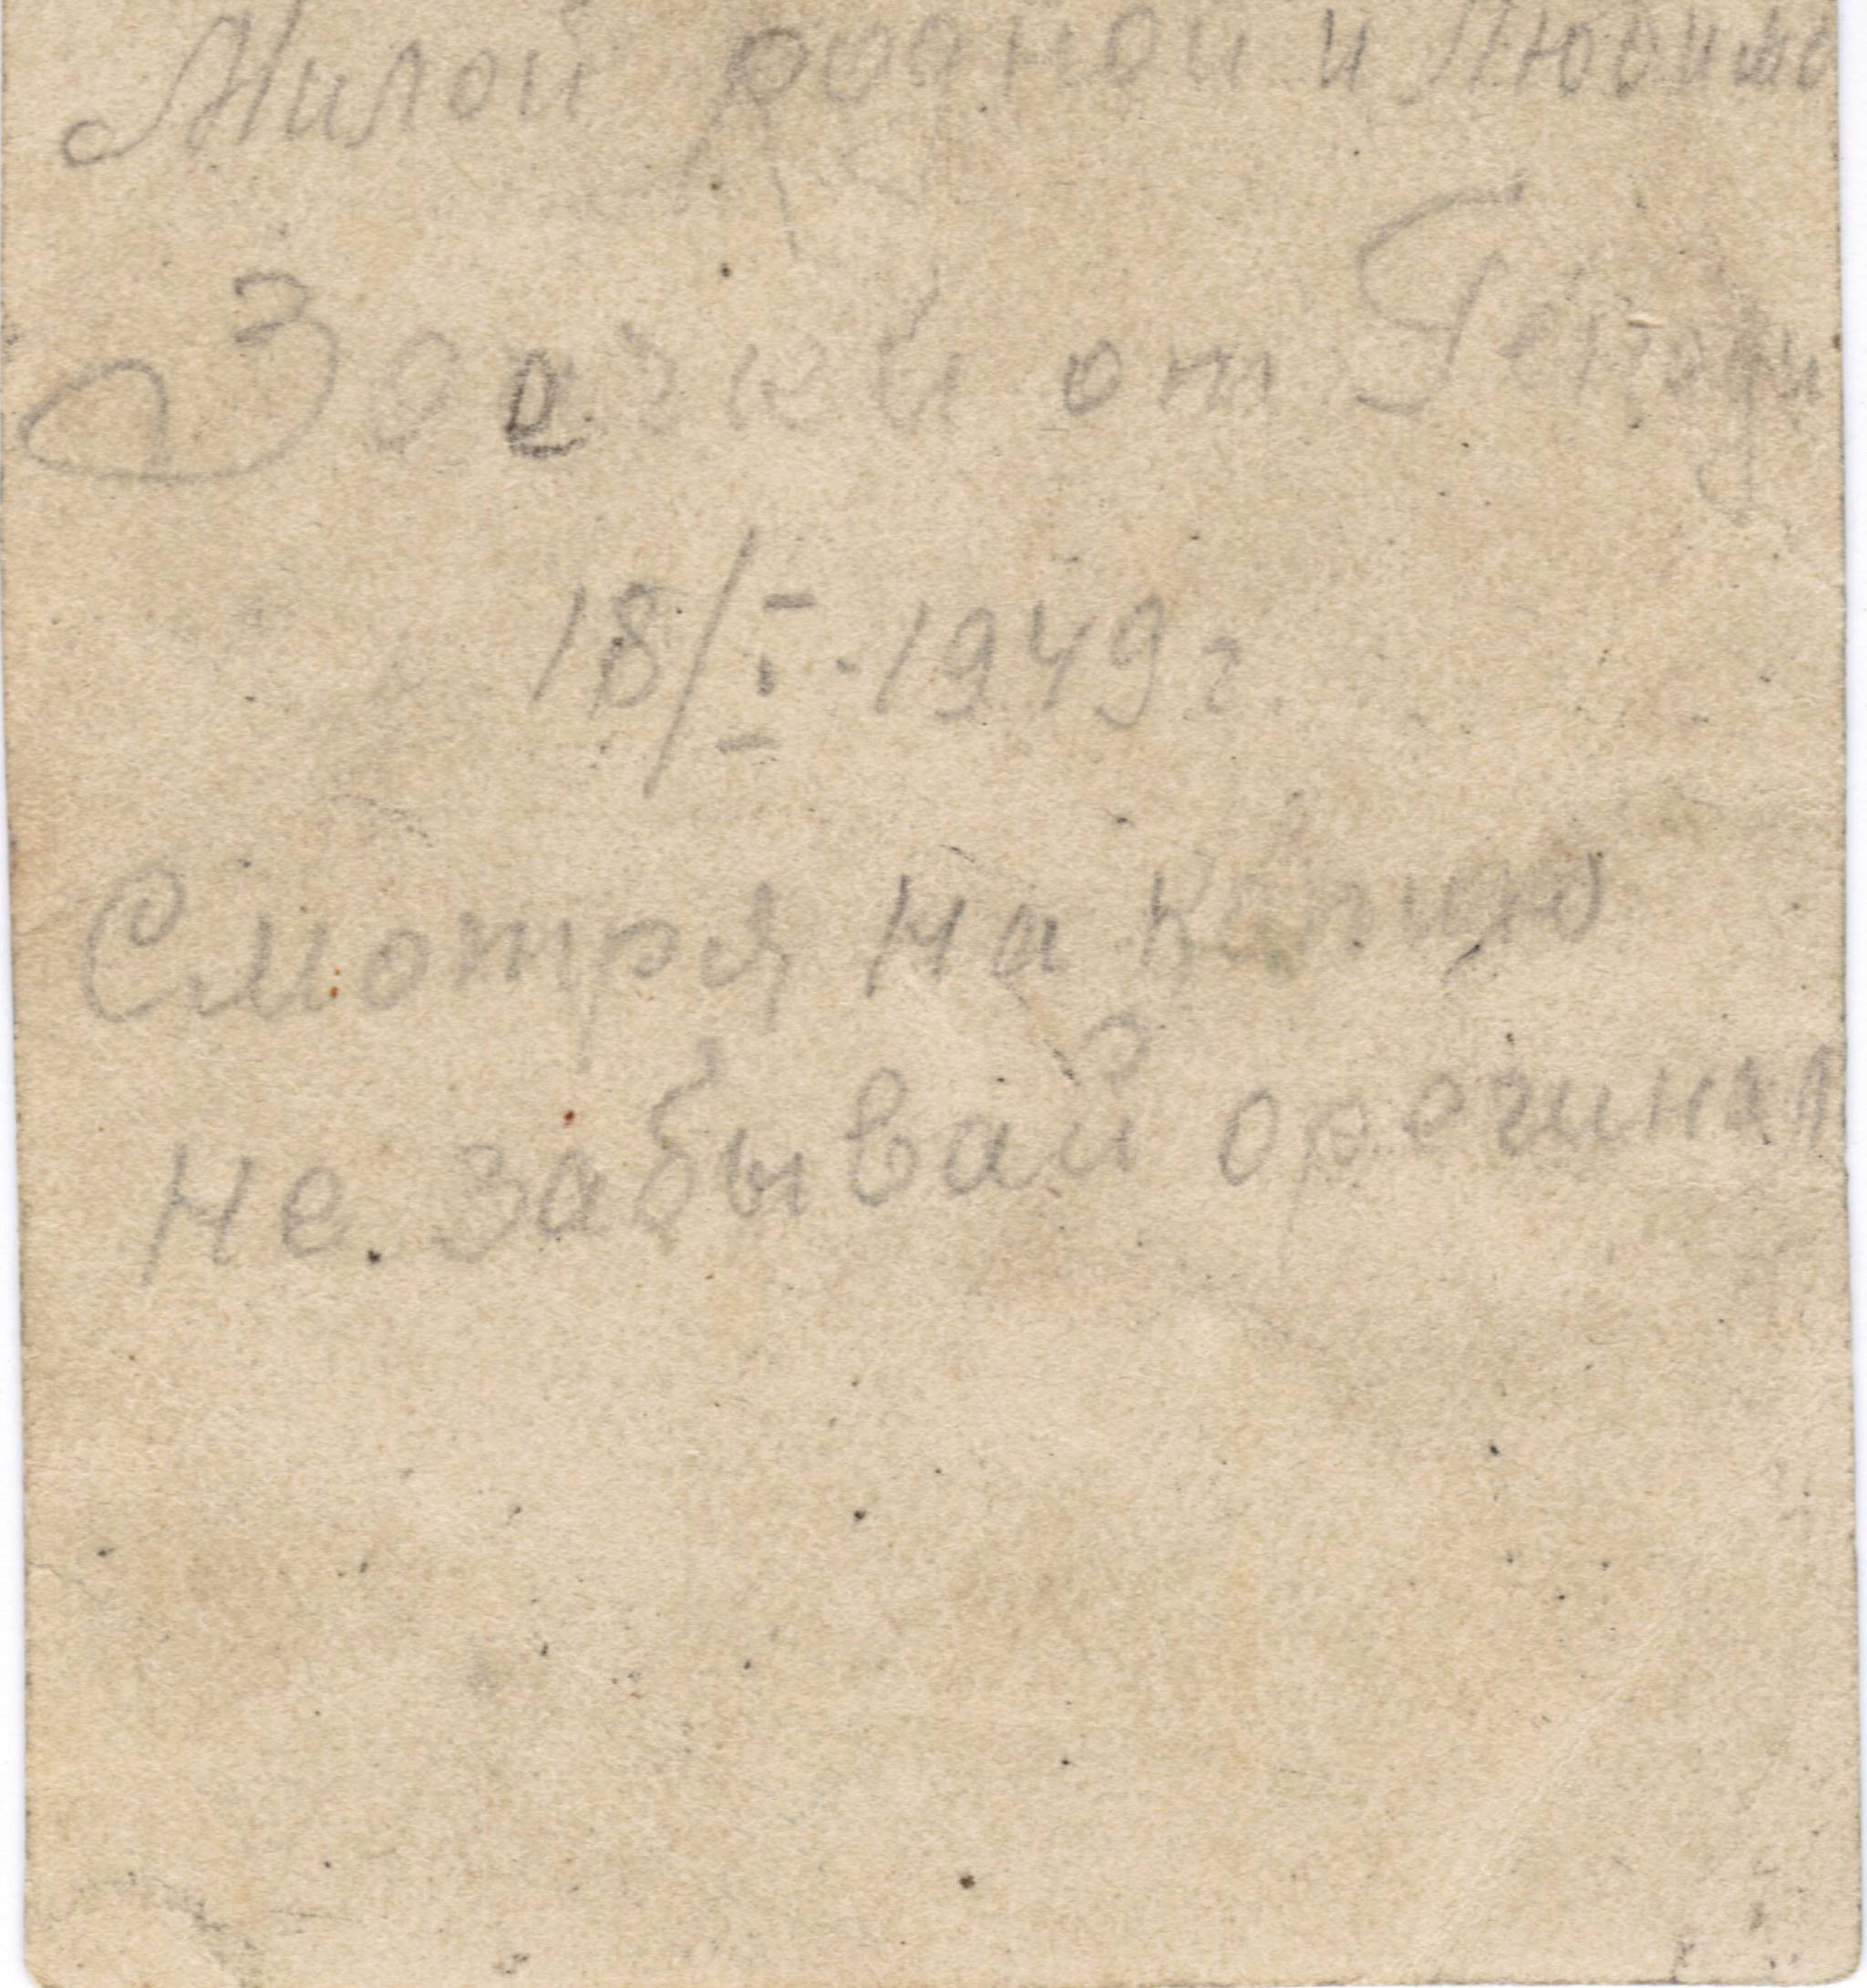 Милой родной и Любимо
Зоечкей от Генади
18/I-1949г.
Смотря на копию
не забывай орегинал